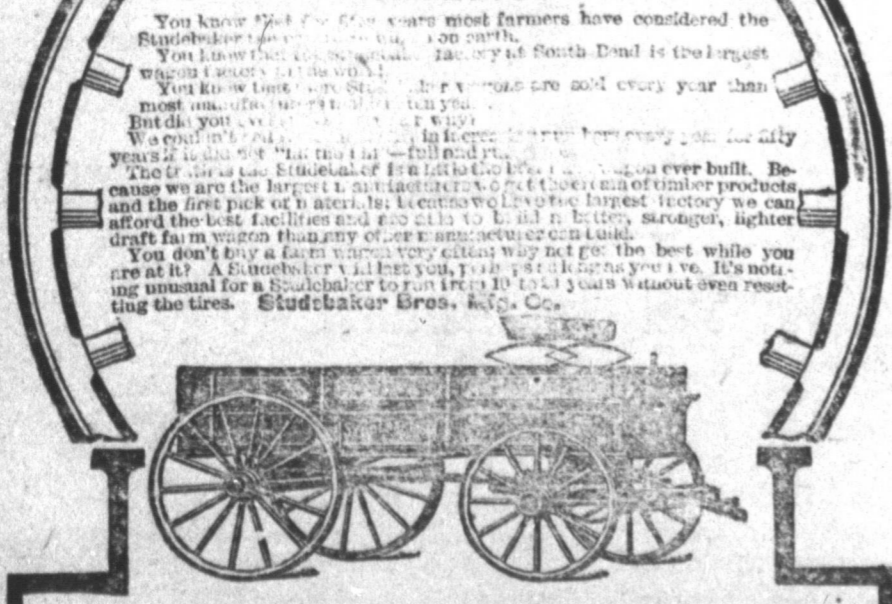 You know that for fifty years most farmers have considered the
Studebaker the on earth.
You know that the factory at South Bend is the largest
wagon factory in the world.
You know that more Studebaker wagons are sold every year than
most manufacturers make in ten years.
But did you ever why?
We couldn't in increasing numbers every year for fifty
years if it did not "fill the bill"—full and
The truth is the Studebaker is a little the best farm wagon ever built. Be-
cause we are the largest manufacturers we get the cream of timber products
and the first pick of materials; because we have the largest factory we can
afford the best facilities and are able to build a better, stronger, lighter
draft farm wagon than any other manufacturer can build.
You don't buy a farm wagon very often; why not get the best while you
are at it? A Studebaker will last you, perhaps as long as you live. It's noth-
ing unusual for a Studebaker to run from 10 to years without even reset-
ting the tires. Studebaker Bros. Mfg. Co.